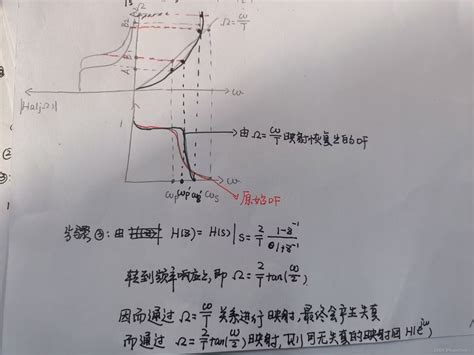 Ω
Ω=ω/T
|H(jΩ)|
ω
1
由Ω=ω/T映射恢复出的DF
ω
ωp ωp' ωs' ωs
原始DF
步骤③:由 H(z)=H(s)|s=2/T 1-z⁻¹/1+z⁻¹
转到频率响应之,即 Ω=2/T tan(ω/2)
因而通过 Ω=ω/T 关系进行映射,最终会产生失真
而通过 2/T tan(ω/2)映射,则可无失真的映射回 H(e^jω